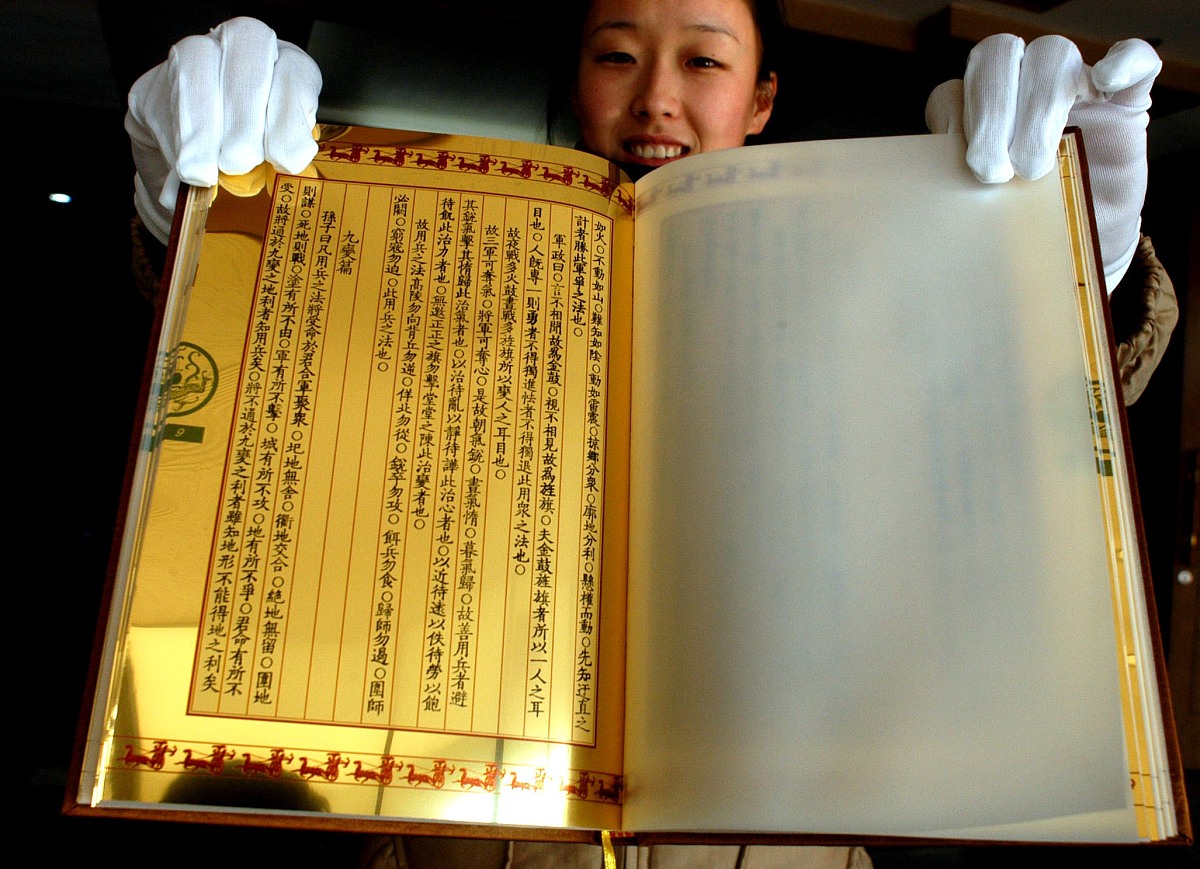 如火○不動如山○難知如陰○動如雷震○掠鄉分衆○廓地分利○懸權而動○先知迂直之
計者勝此軍爭之法也○
軍政曰○言不相聞故爲金鼓○視不相見故爲旌旗○夫金鼓旌旗者所以一人之耳
目也○人旣專一則勇者不得獨進怯者不得獨退此用衆之法也○
故夜戰多火鼓晝戰多旌旗所以變人之耳目也○
故三軍可奪氣○將軍可奪心○是故朝氣銳○晝氣惰○暮氣歸○故善用兵者避
其銳氣擊其惰歸此治氣者也○以治待亂以靜待譁此治心者也○以近待遠以佚待勞以飽
待飢此治力者也○無邀正正之旗勿擊堂堂之陳此治變者也○
故用兵之法高陵勿向背丘勿逆○佯北勿從○銳卒勿攻○餌兵勿食○歸師勿遏○圍師
必闕○窮寇勿迫○此用兵之法也○
九變篇
孫子曰凡用兵之法將受命於君合軍聚衆○圮地無舍○衢地交合○絕地無留○圍地
則謀○死地則戰○塗有所不由○軍有所不擊○城有所不攻○地有所不爭○君命有所不
受○故將通於九變之地利者知用兵矣○將不通於九變之利者雖知地形不能得地之利矣
9